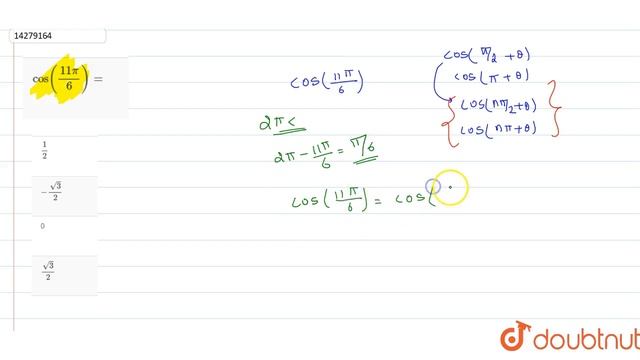 14279164
cos(11π/6) =
1/2
-√3/2
0
√3/2
cos(11π/6)
2π <
2π - 11π/6 = π/6
cos(11π/6) = cos(
cos(π/2 + θ)
cos(π + θ)
cos(nπ/2 + θ)
cos(nπ + θ)
doubtnut